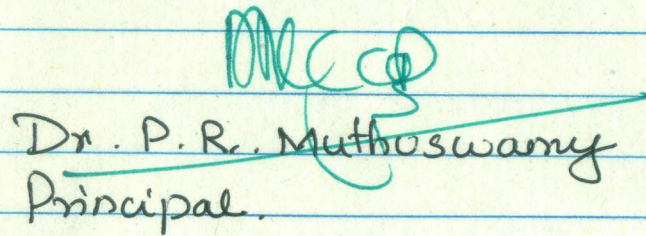 Dr. P. R. Muthuswamy
Principal.